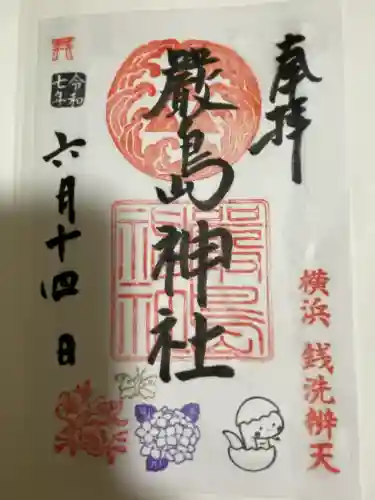 奉拝
嚴島神社
嚴島
神社
横浜 銭洗辨天
令和
七年
六月十四日